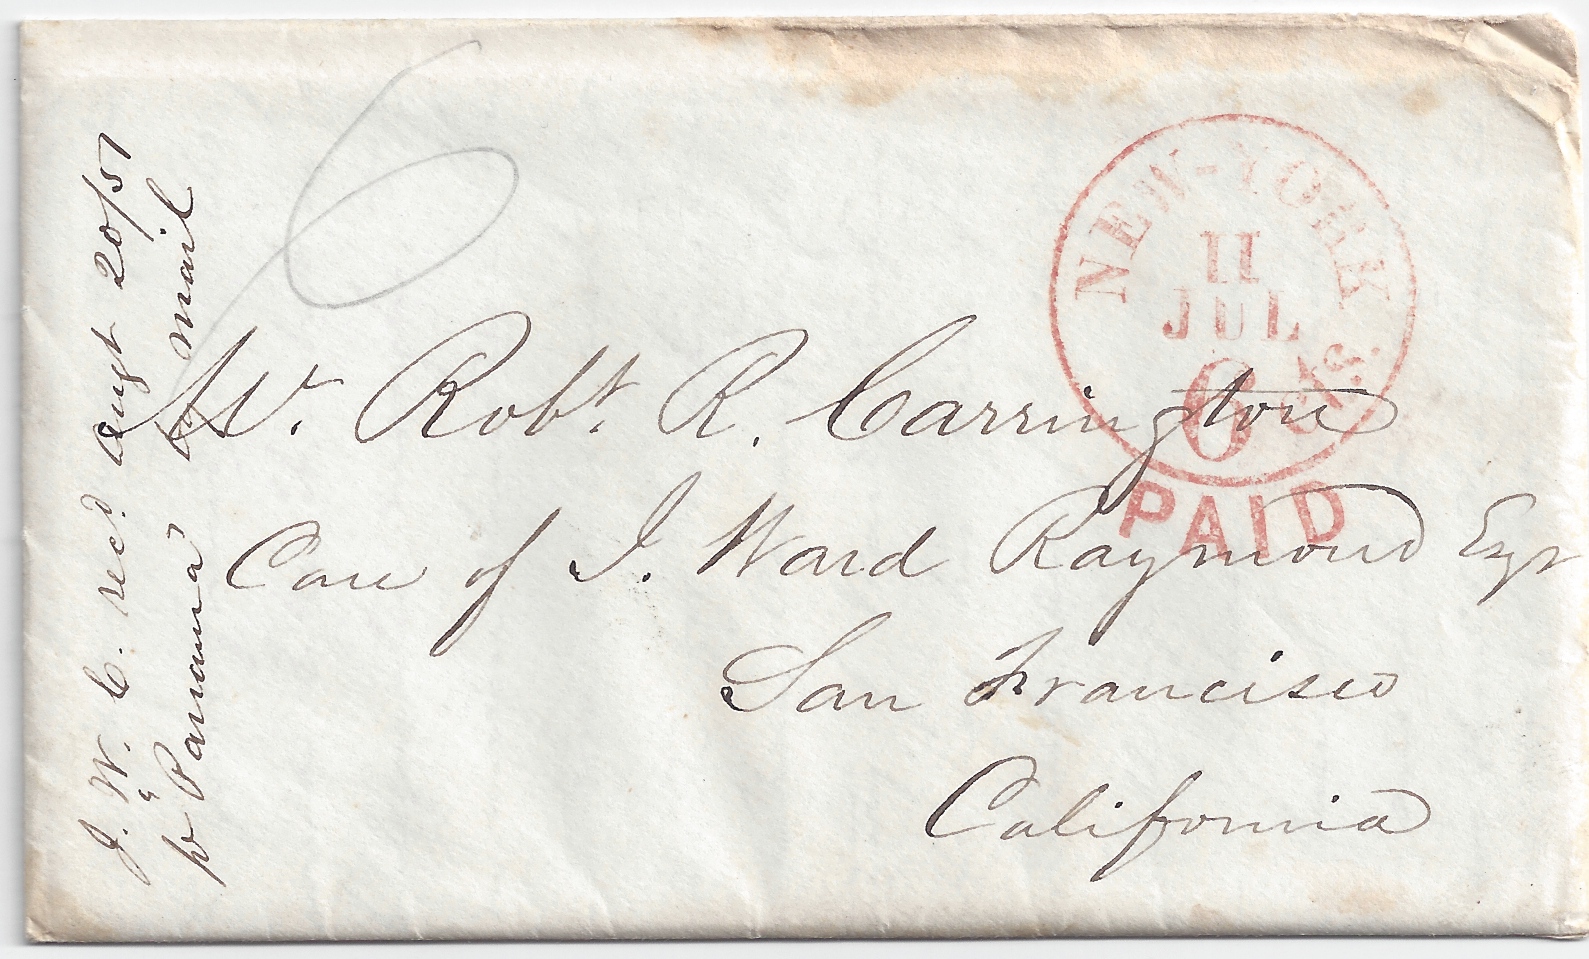 6
NEW-YORK
11
JUL
6 cts.
PAID
Mr. Robt. R. Carrington
Care of J. Ward Raymond Esqr
San Francisco
California
J. W. C. recd Augt 20/51
pr Panama mail